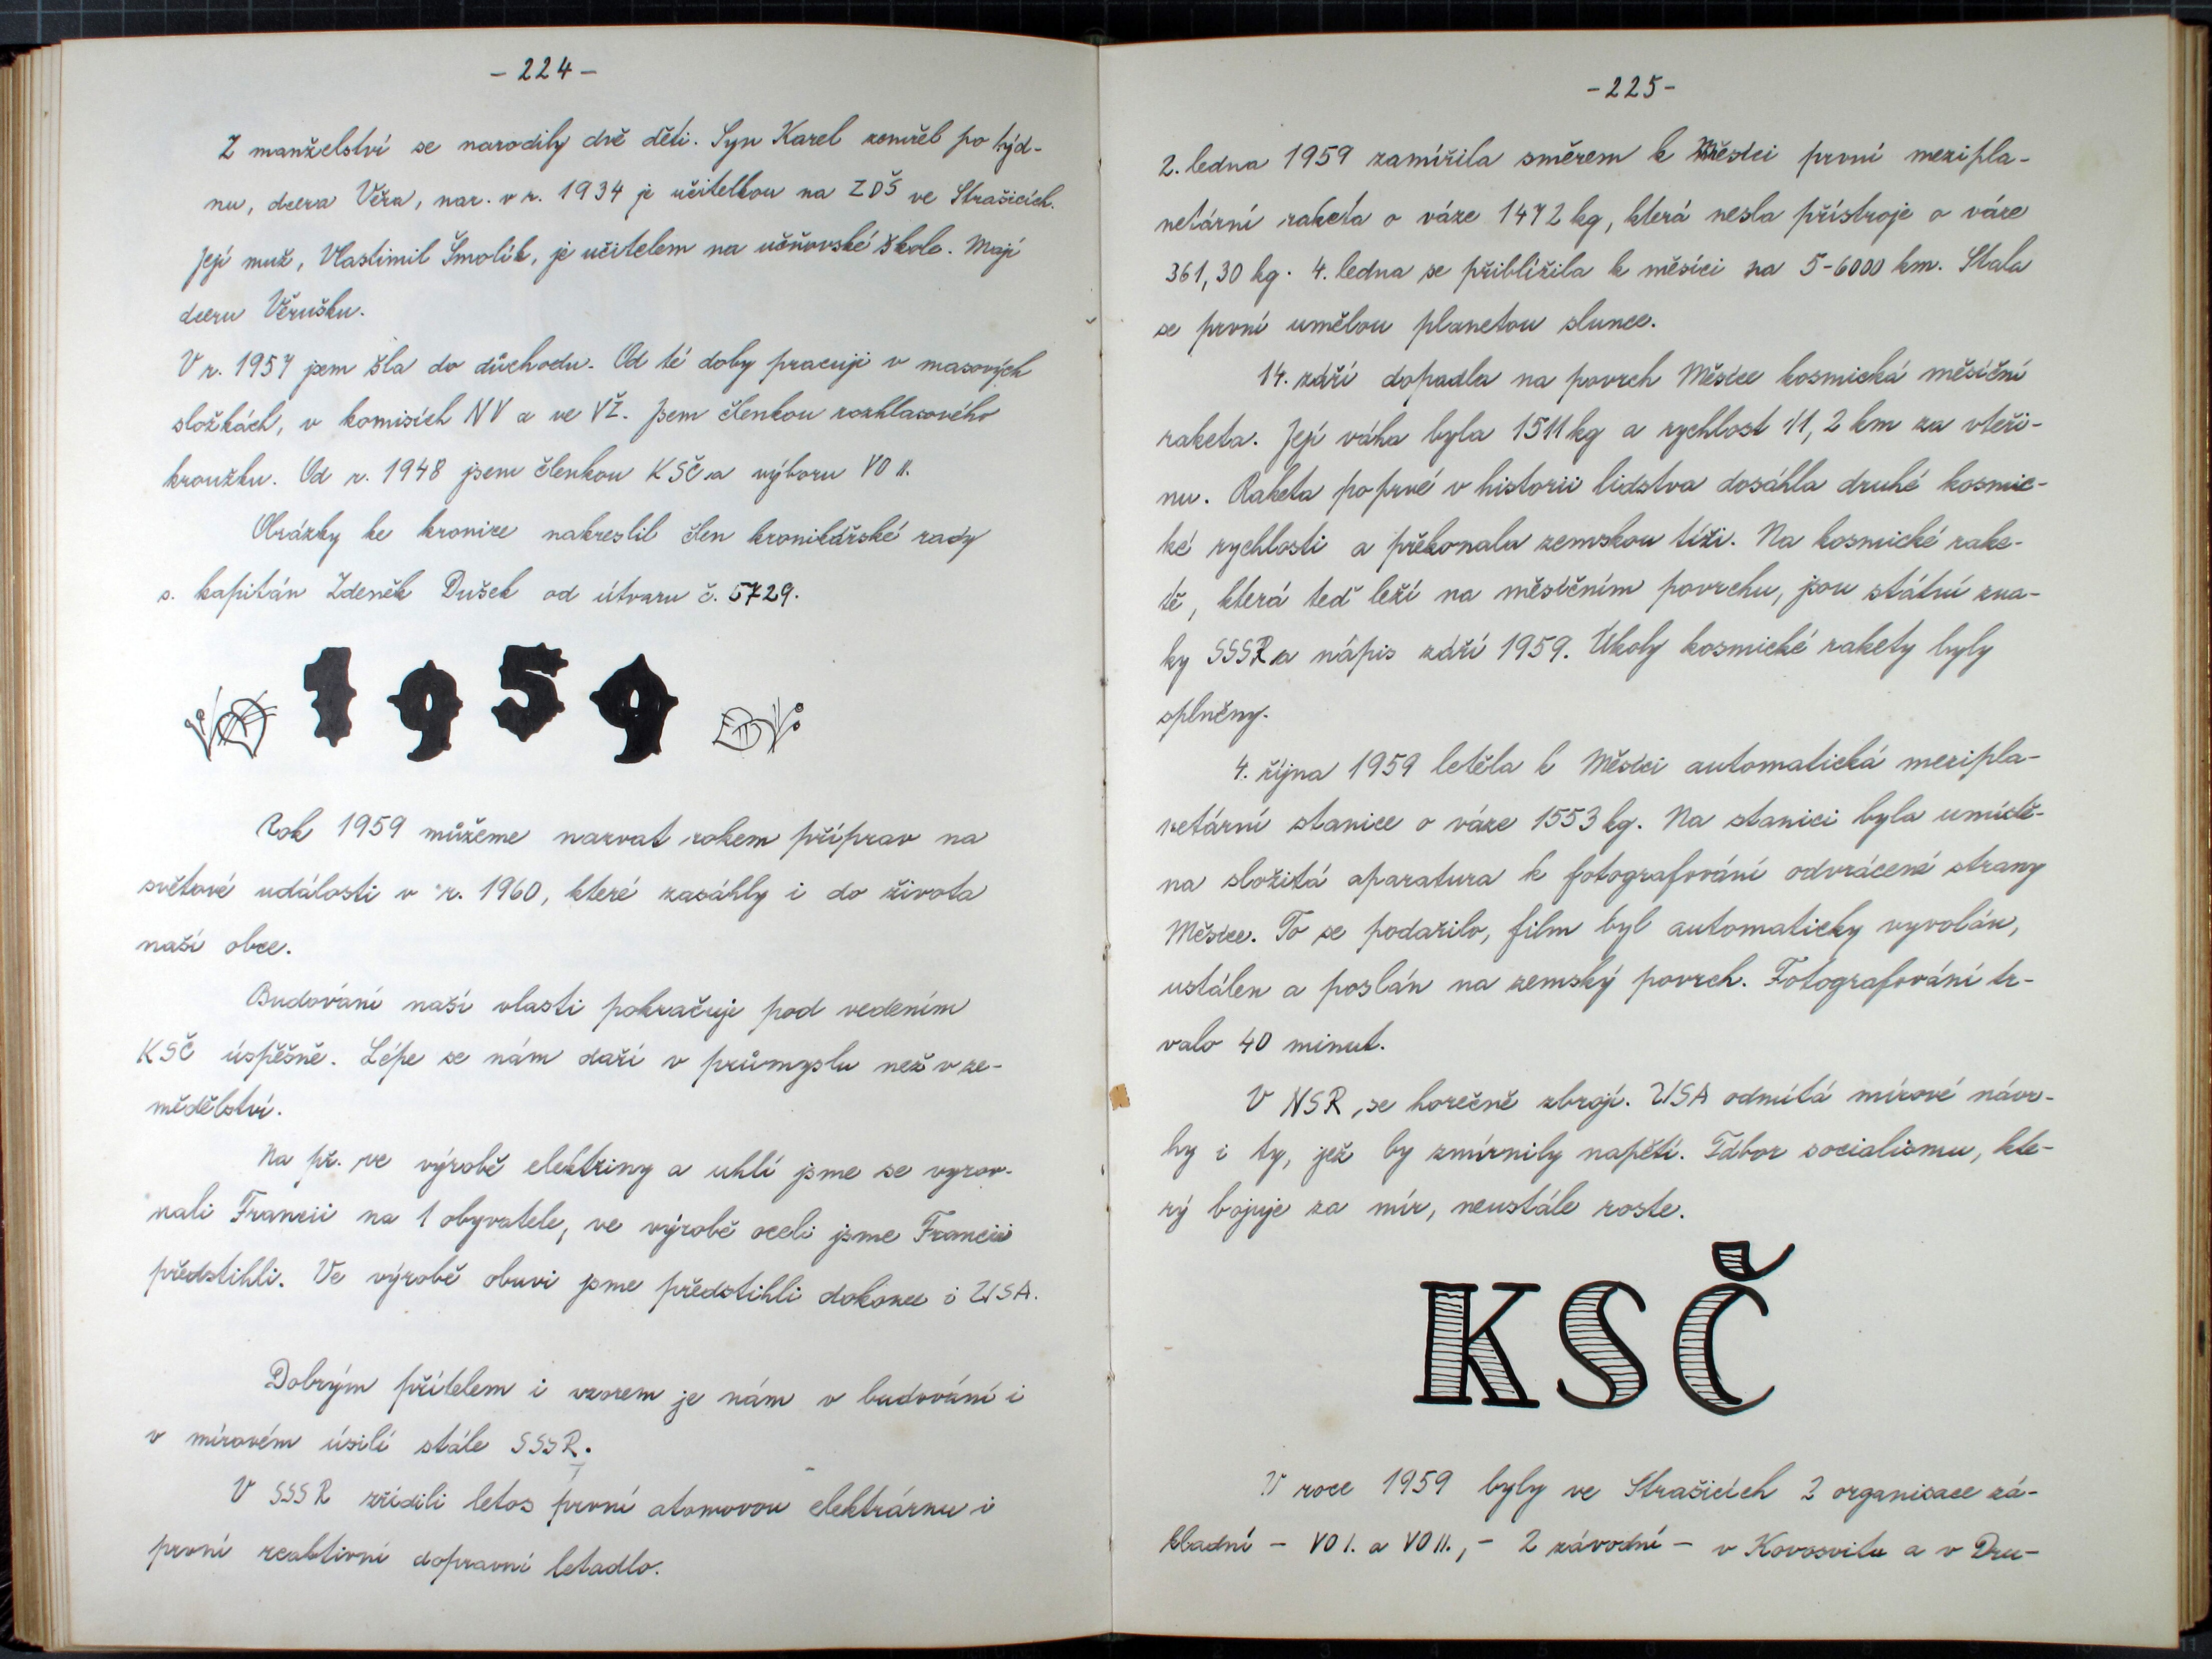 - 224 -
Z manželství se narodily dvě děti. Syn Karel zemřel po týd-
nu, dcera Věra, nar. v r. 1934 je učitelkou na ZDŠ ve Strašicích.
Její muž, Vlastimil Šmolík, je učitelem na učňovské škole. Mají
dceru Věrušku.
V r. 1957 jsem šla do důchodu. Od té doby pracuji v masových
složkách, v komisích NV a ve VŽ. Jsem členkou rozhlasového
kroužku. Od r. 1948 jsem členkou KSČ a výboru VO II.
Obrázky ke kronice nakreslil člen kronikářské rady
s. kapitán Zdeněk Dušek od útvaru č. 5729.
1959
Rok 1959 můžeme nazvat rokem příprav na
světové události v r. 1960, které zasáhly i do života
naší obce.
Budování naší vlasti pokračuje pod vedením
KSČ úspěšně. Lépe se nám daří v průmyslu než v ze-
mědělství.
Na př. ve výrobě elektřiny a uhlí jsme se vyrov-
nali Francii na 1 obyvatele, ve výrobě oceli jsme Francii
předstihli. Ve výrobě obuvi jsme předstihli dokonce i USA.
Dobrým přítelem i vzorem je nám v budování i
v mírovém úsilí stále SSSR.
V SSSR zřídili letos první atomovou elektrárnu i
první reaktivní dopravní letadlo.
- 225 -
2. ledna 1959 zamířila směrem k Měsíci první mezipla-
netární raketa o váze 1472 kg, která nesla přístroje o váze
361,30 kg. 4. ledna se přiblížila k měsíci na 5-6000 km. Stala
se první umělou planetou slunce.
14. září dopadla na povrch Měsíce kosmická měsíční
raketa. Její váha byla 1511 kg a rychlost 11,2 km za vteři-
nu. Raketa poprvé v historii lidstva dosáhla druhé kosmic-
ké rychlosti a překonala zemskou tíži. Na kosmické rake-
tě, která teď leží na měsíčním povrchu, jsou státní zna-
ky SSSR a nápis září 1959. Úkoly kosmické rakety byly
splněny.
4. října 1959 letěla k Měsíci automatická mezipla-
netární stanice o váze 1553 kg. Na stanici byla umístě-
na složitá aparatura k fotografování odvrácené strany
Měsíce. To se podařilo, film byl automaticky vyvolán,
ustálen a poslán na zemský povrch. Fotografování tr-
valo 40 minut.
V NSR, se horečně zbrojí. USA odmítá mírové návr-
hy i ty, jež by zmírnily napětí. Tábor socialismu, kte-
rý bojuje za mír, neustále roste.
KSČ
V roce 1959 byly ve Strašicích 2 organisace zá-
kladní - VO I. a VO II., - 2 závodní - v Kovosvitu a v Dru-